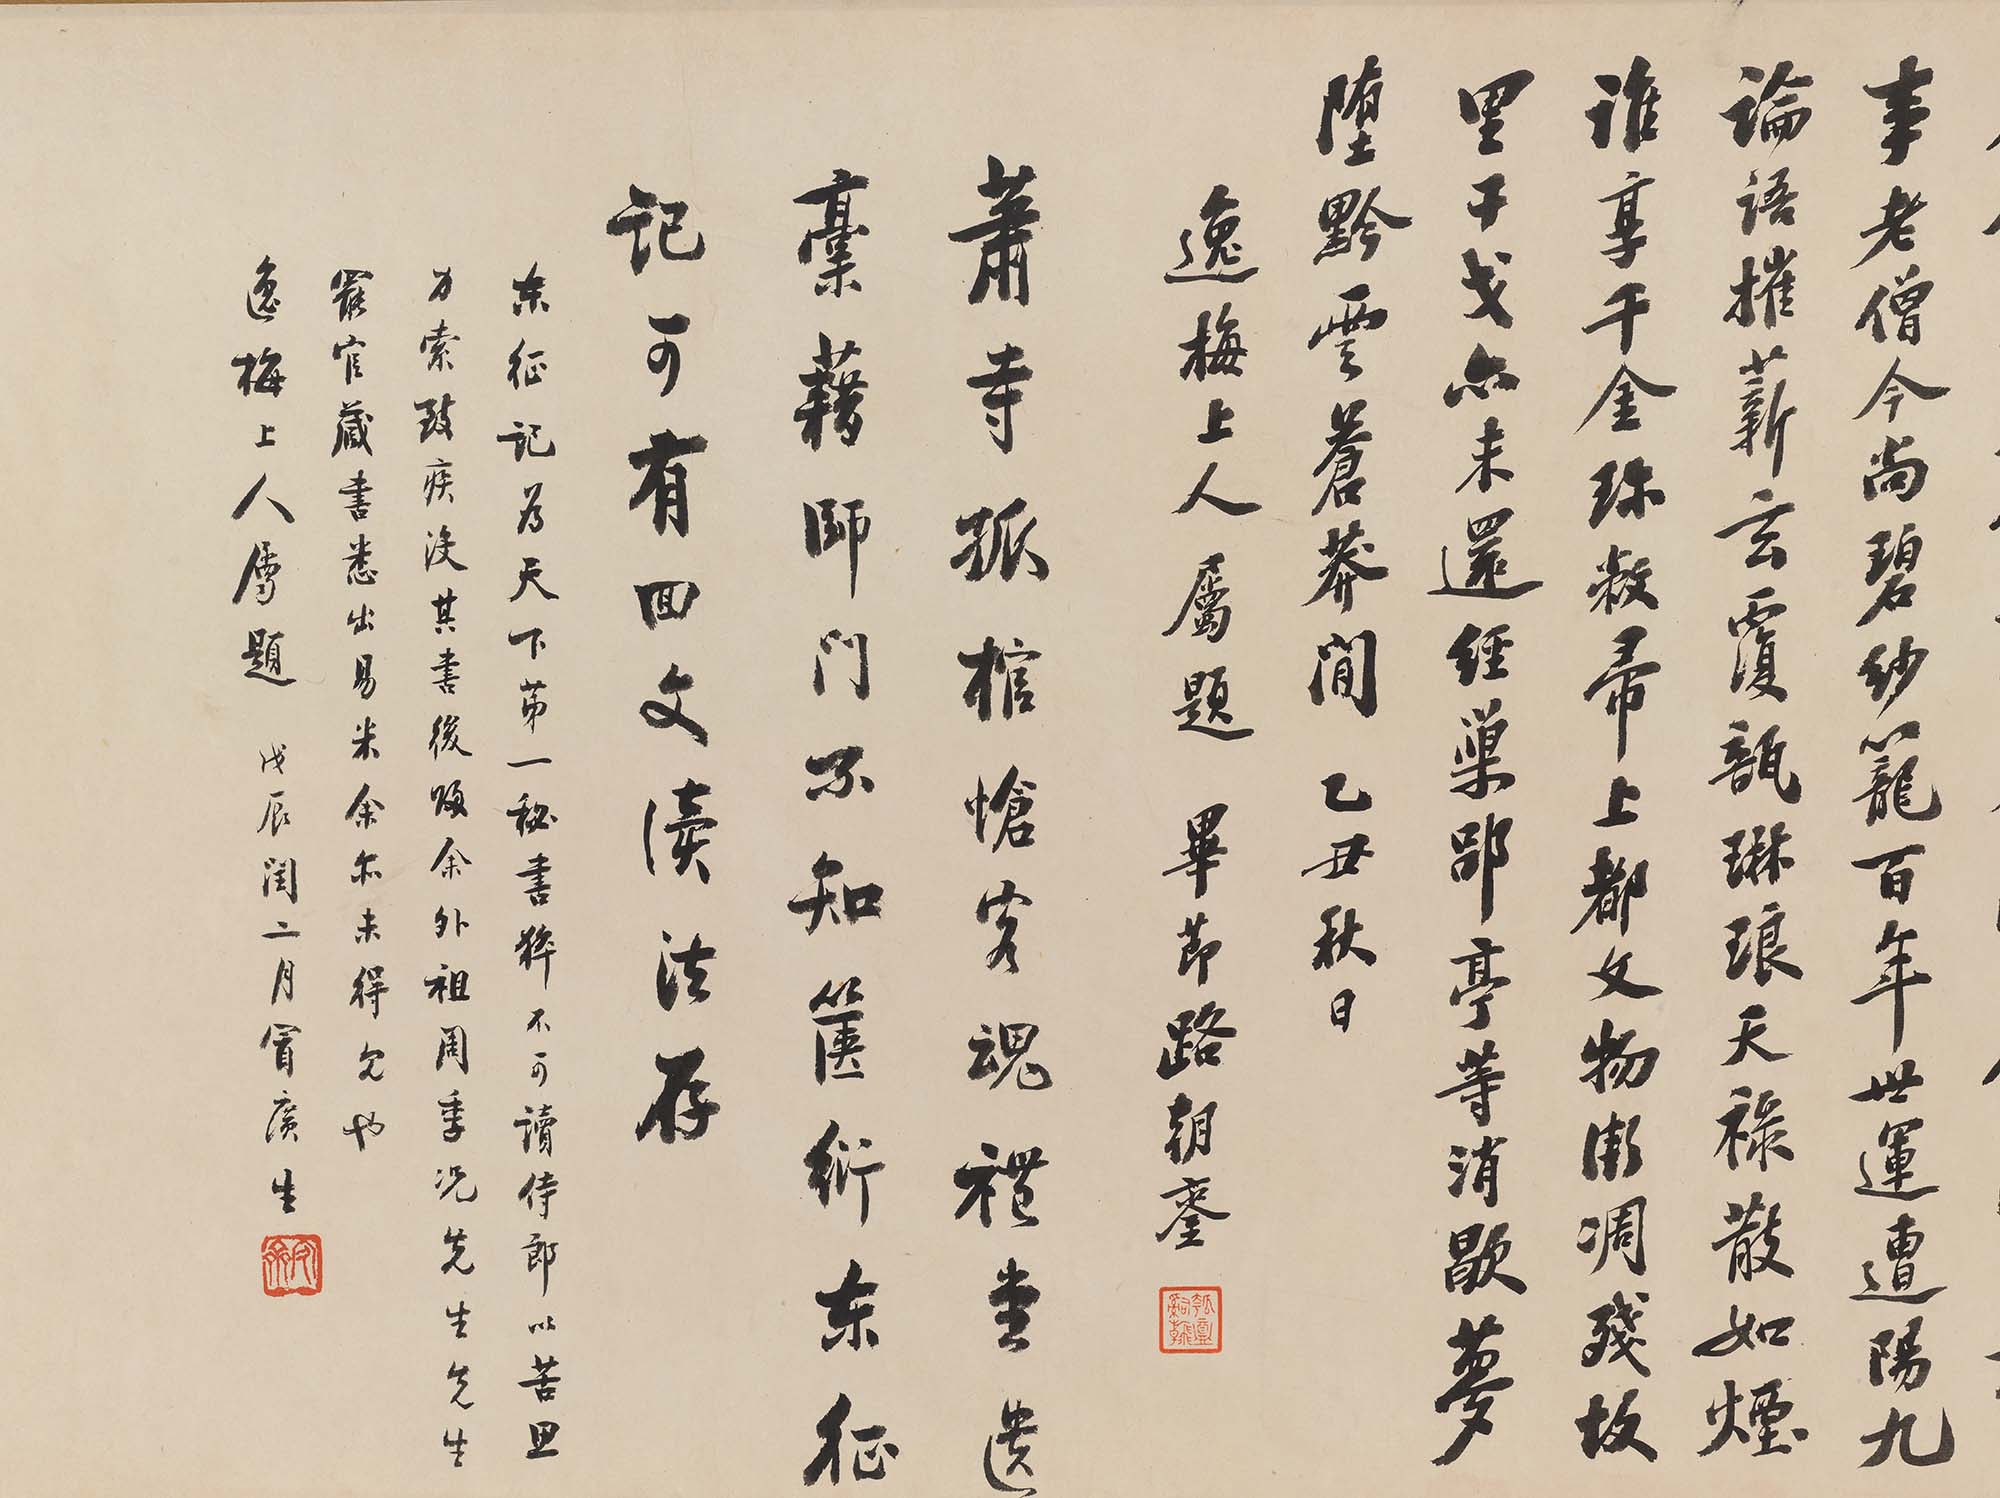 事老僧今尚碧紗籠百年世運遭陽九
論語摧薪玄覆瓿琳琅天祿散如煙
誰享千金珍敝帚上都文物漸凋殘故
里干戈亦未還經巢郘亭等消歇夢
墮黔雲蒼莽間 乙丑秋日
逸梅上人屬題 畢節路朝鑾
蕭寺孤棺愴客魂禮堂遺
稾藉師門不知篋衍東征
記可有回文讀法存
東征記為天下第一秘書猝不可讀侍郎以苦思
力索致疾沒其書後歸余外祖周季況先生先生
罷官藏書悉出易米余亦未得見也
逸梅上人屬題 戊辰閏二月冒廣生